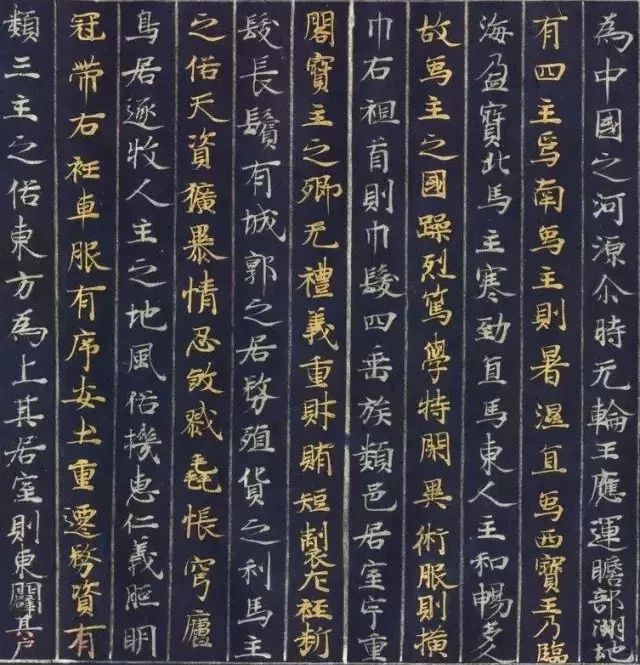 為中國之河源尒時无輪王應運贍部洲地
有四主焉南象主則暑濕宜象西寶主乃臨
海盈寶北馬主寒勁宜馬東人主和暢多人
故象主之國躁烈篤學特閑異術服則橫
巾右袒首則巾髮四垂族類邑居室宇重
閣寶主之鄉无禮義重財賄短製左衽斷
髮長鬢有城郭之居務殖貨之利馬主
之俗天資獷暴情忍煞戮毳帳穹廬
鳥居逐牧人主之地風俗機惠仁義照明
冠帶右衽車服有序安土重遷務資有
類三主之俗東方為上其居室則東闢其戶